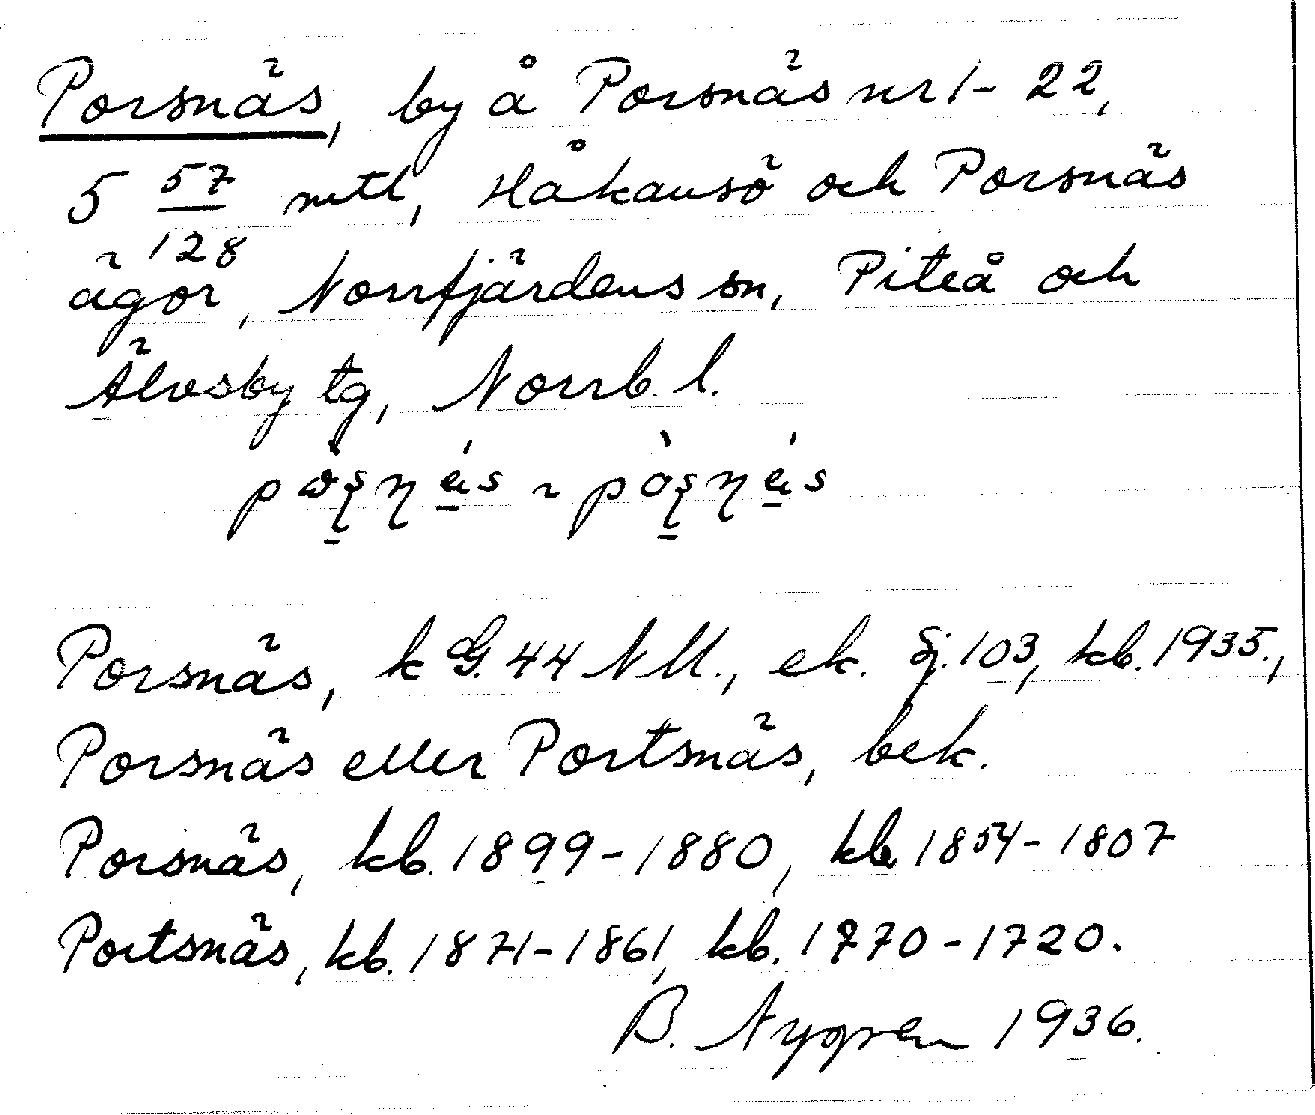 Porsnäs, by å Porsnäs nr 1-22,
5 57/128 mtl, Håkansö och Porsnäs
ägor, Norrfjärdens sn, Piteå och
Älvsby tg, Norrb. l.
Porsnäs, k G. 44 NU., ek. fj. 103, kb. 1935.,
Porsnäs eller Portsnäs, bek.
Porsnäs, kb. 1899-1880, kb 1854-1807
Portsnäs, kb. 1871-1861, kb. 1770-1720.
B. Nygren 1936.